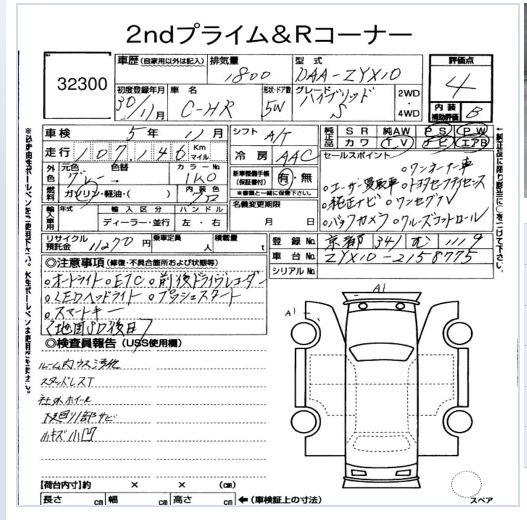 2ndプライム&Rコーナー
32300
車歴 (自家用以外は記入)
排気量 1800
型式 DAA-ZYX10
評価点 4
初度登録年月 30/11月
車名 C-HR
形状・ドア数 5W
グレード ハイブリッド S
2WD ・ 4WD
内装補助評価 B
車検 5年 11月
シフト A/T
純正品 SR 純AW PS PW
カワ TV ナビ エアB
走行 107,146 Km マイル
冷房 AAC
セールスポイント
外色 元色 グレー 色替 カラーNo 1K0
ガソリン・軽油・( ) 内装色
新車整備手帳(保証書付) 有・無
(※書類と一緒に保管下さい)
。ワンオーナー車
。ユーザー買取車 。トヨタセーフティセンス
。純正ナビ 。ワンセグTV
。バックカメラ 。クルーズコントロール
輸入車用 年式 輸入区分 ハンドル
ディーラー・並行 左・右
名義変更期限 月 日
リサイクル預託金 11270円
乗車定員 人
積載量 t
登録No. 京都 341 む 1119
車台No. ZYX10-2158775
シリアルNo.
◎注意事項 (修復・不具合箇所および状態等)
。オートライト 。ETC 。前後ドライブレコーダー
。LEDヘッドライト 。プッシュスタート
。スマートキー
〈地図SD後日〉
◎検査員報告 (USS使用欄)
スタッドレスT
社外ホイール
A1
A1
[荷台内寸]約 × × (cm)
長さ cm 幅 cm 高さ cm ←(車検証上の寸法)
スペア